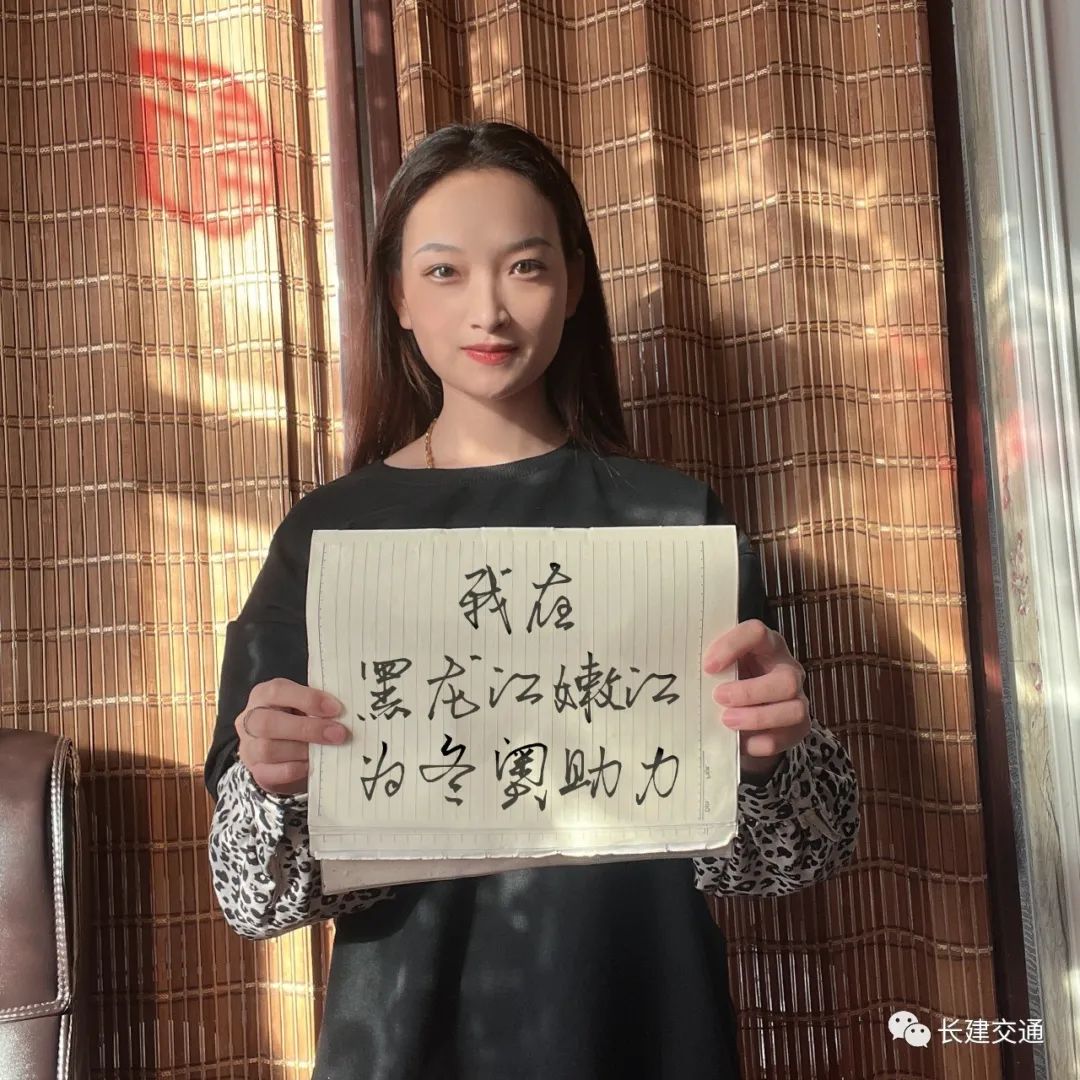 我在
黑龙江嫩江
为冬奥助力
长建交通